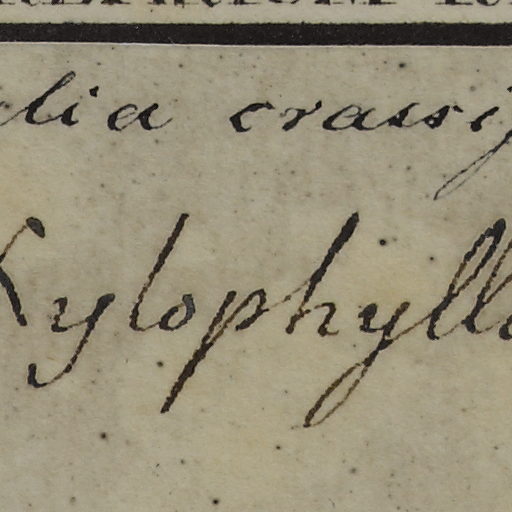 lia crassi
Xylophylla